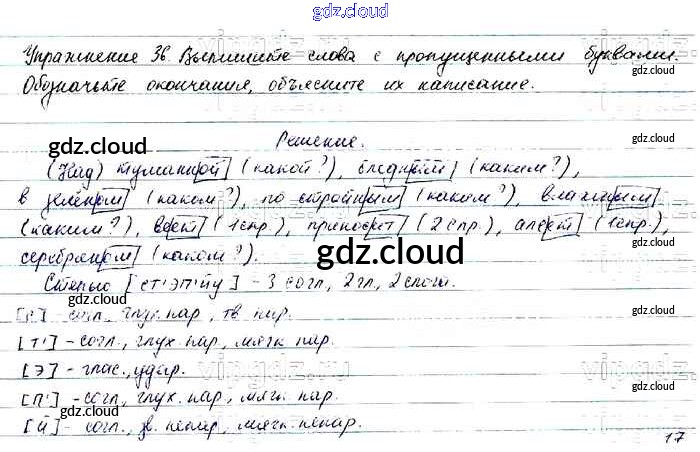 gdz.cloud
Упражнение 36. Выпишите слова с пропущенными буквами.
Обозначьте окончания, объясните их написание.
gdz.cloud gdz.cloud
Решение.
(Над) туманной (какой?), бледным (каким?),
в зелёном (каком?), по стройным (каким?), влажным
(каким?), веет (1 спр.), приносит (2 спр.), алеет (1 спр.),
gdz.cloud
серебряном (каком?).
Степью [ст'эп'йу] - 3 согл, 2 гл, 2 слога.
gdz.cloud
[с] - согл, глух. пар, тв. пар.
[т'] - согл., глух пар, мягк. пар.
[э] - глас., удар.
gdz.cloud
[п'] - согл, глух. пар, мягк. пар.
[й] - согл, зв. непар, мягк. непар.
gdz.cloud
17